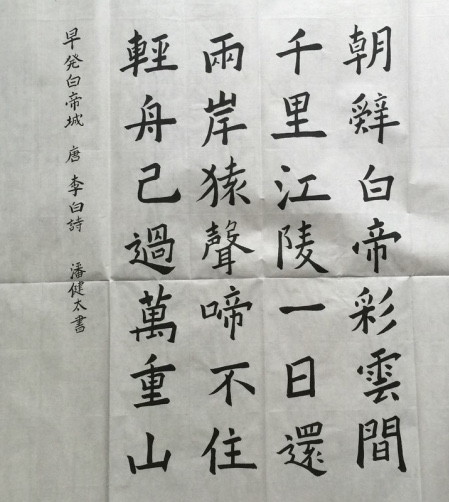 朝辭白帝彩雲間
千里江陵一日還
兩岸猿聲啼不住
輕舟己過萬重山
早発白帝城 唐 李白詩 潘健太書